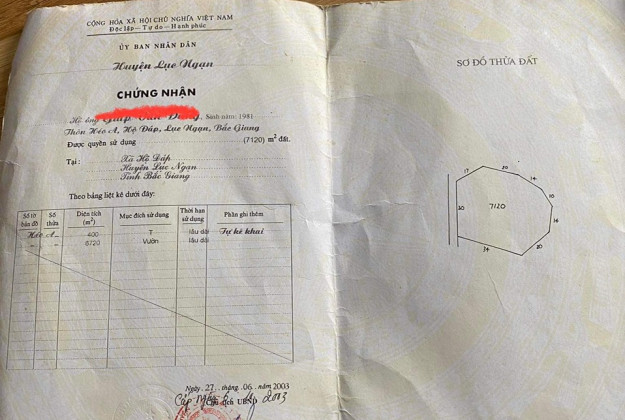 CỘNG HÒA XÃ HỘI CHỦ NGHĨA VIỆT NAM
Độc lập – Tự do – Hạnh phúc
ỦY BAN NHÂN DÂN
Huyện Lục Ngạn
CHỨNG NHẬN
Hộ ông Sinh năm: 1981
Thôn Héo A, Hộ Đáp, Lục Ngạn, Bắc Giang
Được quyền sử dụng (7120) m² đất.
Tại: Xã Hộ Đáp
Huyện Lục Ngạn
Tỉnh Bắc Giang
Theo bảng liệt kê dưới đây:
Số tờ bản đồ Số thửa Diện tích (m²) Mục đích sử dụng Thời hạn sử dụng Phần ghi thêm
Héo A 400 T lâu dài Tự kê khai
– 〃 – 6720 Vườn lâu dài
Ngày 27 tháng 06 năm 2003
Chủ tịch UBND
2003
SƠ ĐỒ THỬA ĐẤT
17 20 14
10
20 7120
16
34 20